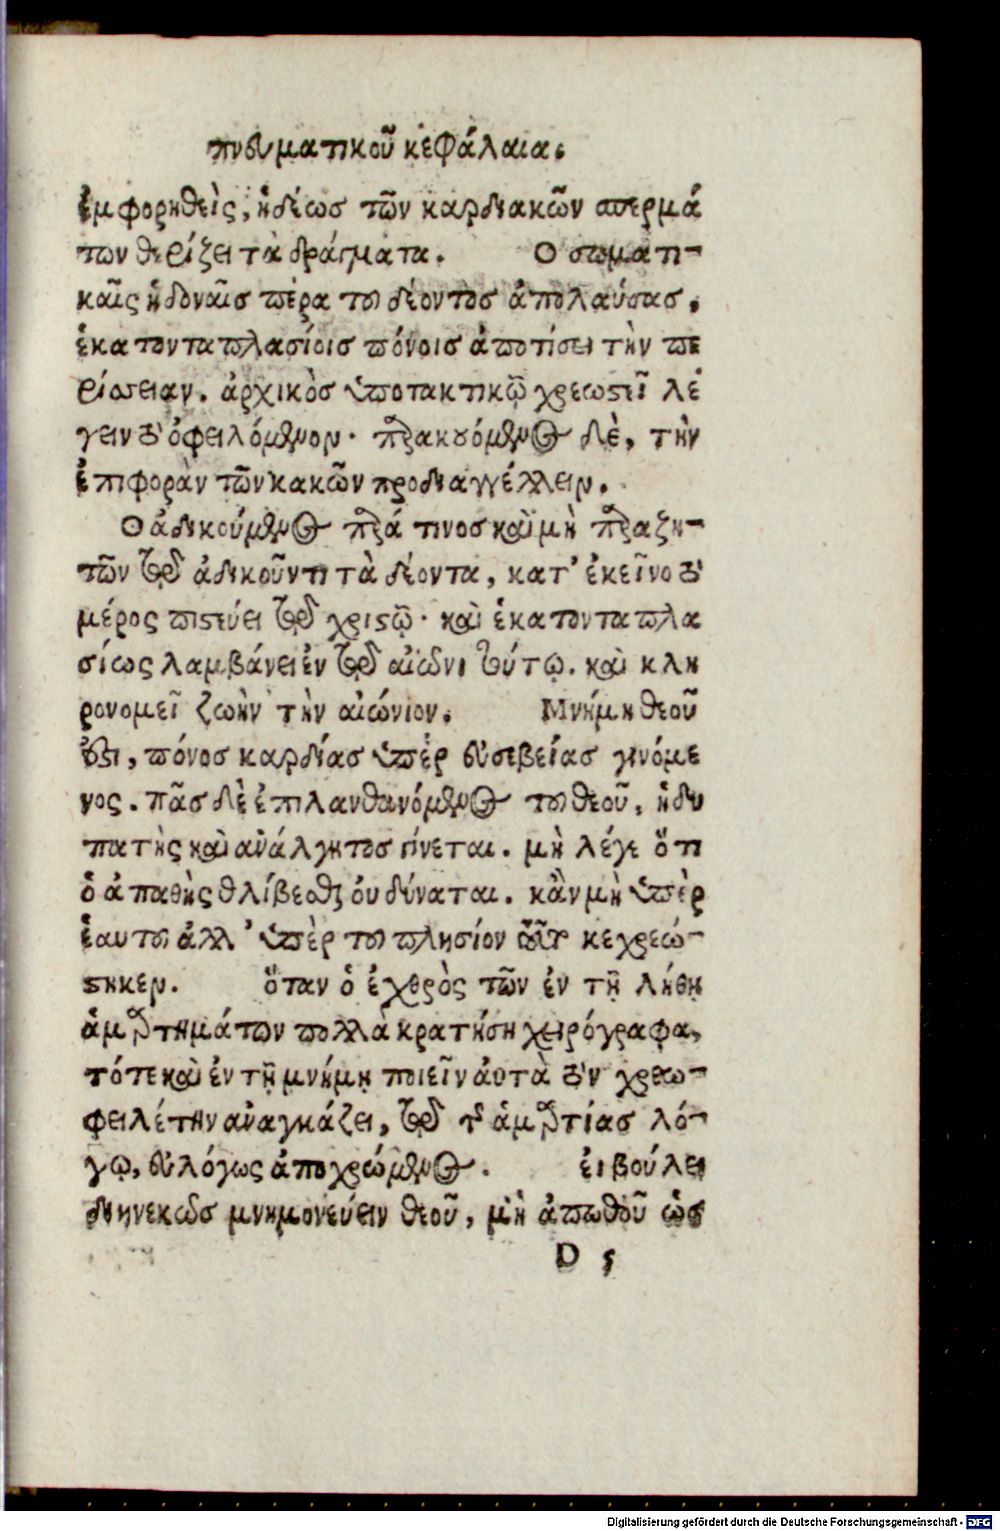 πνευματικοῦ κεφάλαια.
ἐμφορηθεὶς, ἡδέως τῶν καρδιακῶν σπερμά
των θερίζει τὰ δράγματα. Ο σωματι-
καῖς ἡδοναῖς πέρα τοῦ δέοντος ἀπολαύσας,
ἑκατονταπλασίοις πόνοις ἀποτίσει τὴν πε
ρίσσειαν. ἀρχικὸς ὑποτακτικῷ χρεωστεῖ λέ
γειν τὸ ὀφειλόμενον· παρακουόμενος δὲ, τὴν
ἐπιφορὰν τῶν κακῶν προδιαγγέλλειν.
Ο ἀδικούμενος παρά τινος καὶ μὴ παραζη-
τῶν τῷ ἀδικοῦντι τὰ δέοντα, κατ' ἐκεῖνο τὸ
μέρος πιστεύει τῷ χριστῷ· καὶ ἑκατονταπλα
σίως λαμβάνει ἐν τῷ αἰῶνι τούτῳ. καὶ κλη
ρονομεῖ ζωὴν τὴν αἰώνιον. Μνήμη θεοῦ
ἐστι, πόνος καρδίας ὑπὲρ εὐσεβείας γινόμε
νος. πᾶς δὲ ἐπιλανθανόμενος τοῦ θεοῦ, ἡδυ
πατὴς καὶ ἀνάλγητος γίνεται. μὴ λέγε ὅτι
ὁ ἀπαθὴς θλίβεσθαι οὐ δύναται. κἂν μὴ ὑπὲρ
ἑαυτοῦ ἀλλ' ὑπὲρ τοῦ πλησίον τοῦτο κεχρεώ-
στηκεν. ὅταν ὁ ἐχθρὸς τῶν ἐν τῇ λήθῃ
ἁμαρτημάτων πολλὰ κρατήσῃ χειρόγραφα,
τότε καὶ ἐν τῇ μνήμῃ ποιεῖν αὐτὰ τὸν χρεω-
φειλέτην ἀναγκάζει, τῷ τῆς ἁμαρτίας λό-
γῳ, εὐλόγως ἀποχρεώμενος. εἰ βούλει
διηνεκῶς μνημονεύειν θεοῦ, μὴ ἀπωθοῦ ὡς
D 5
Digitalisierung gefördert durch die Deutsche Forschungsgemeinschaft - DFG